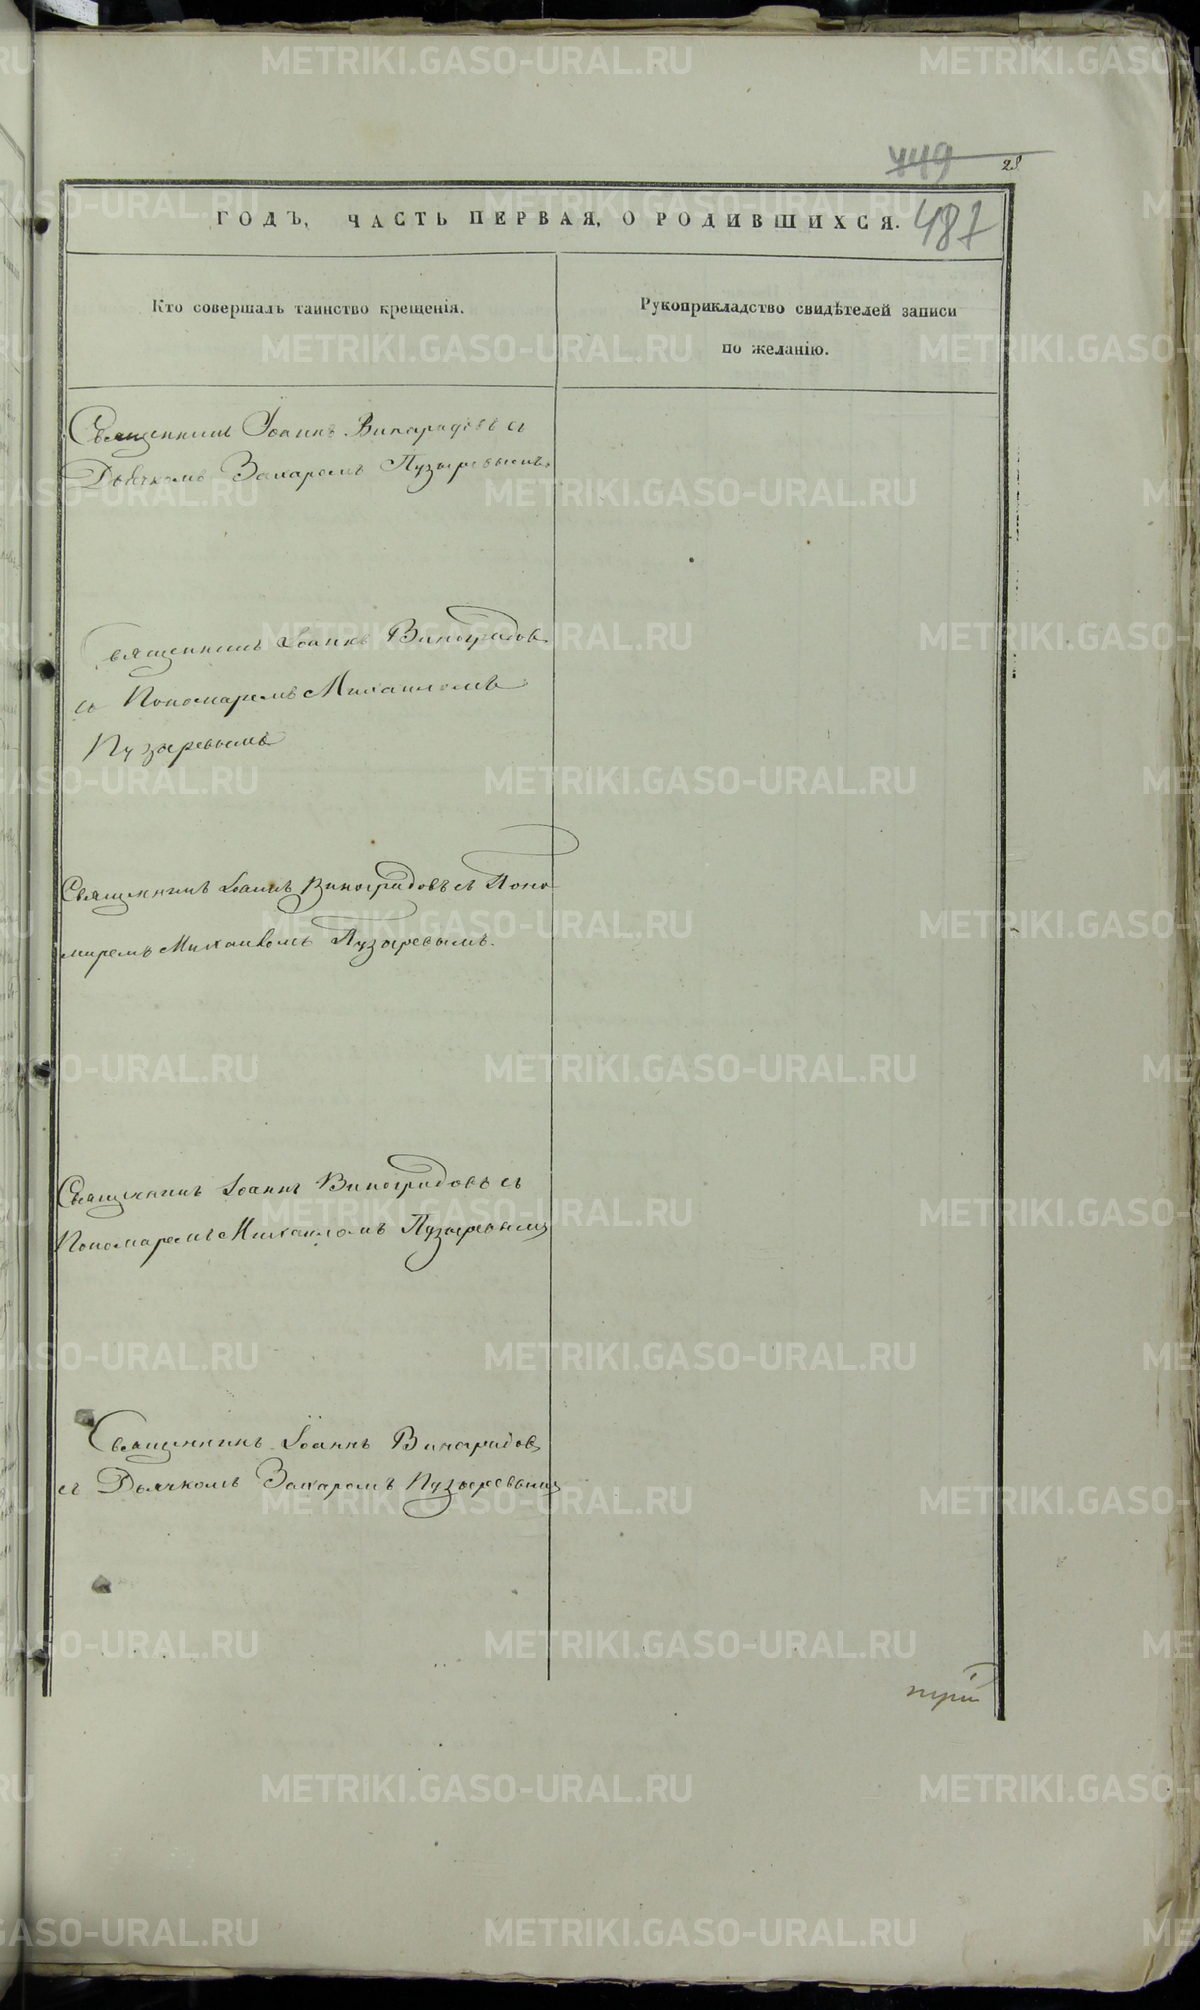 449
28
ГОДЪ, ЧАСТЬ ПЕРВАЯ, О РОДИВШИХСЯ.
487
Кто совершалъ таинство крещенія.
Рукоприкладство свидѣтелей записи
по желанію.
Священникъ Іоаннъ Винарадовъ съ
Дьячкомъ Захаромъ Пузыревымъ.
Священникъ Іоаннъ Виноградовъ
съ Пономаремъ Михаиломъ
Пузыревымъ
Священникъ Іоаннъ Виноградовъ съ Поно
маремъ Михаиломъ Пузыревымъ.
Священникъ Іоаннъ Виноградовъ съ
Пономаремъ Михаиломъ Пузыревымъ
Священникъ Іоаннъ Винарадовъ
съ Дьячкомъ Захаромъ Пузыревымъ
METRIKI.GASO-URAL.RU